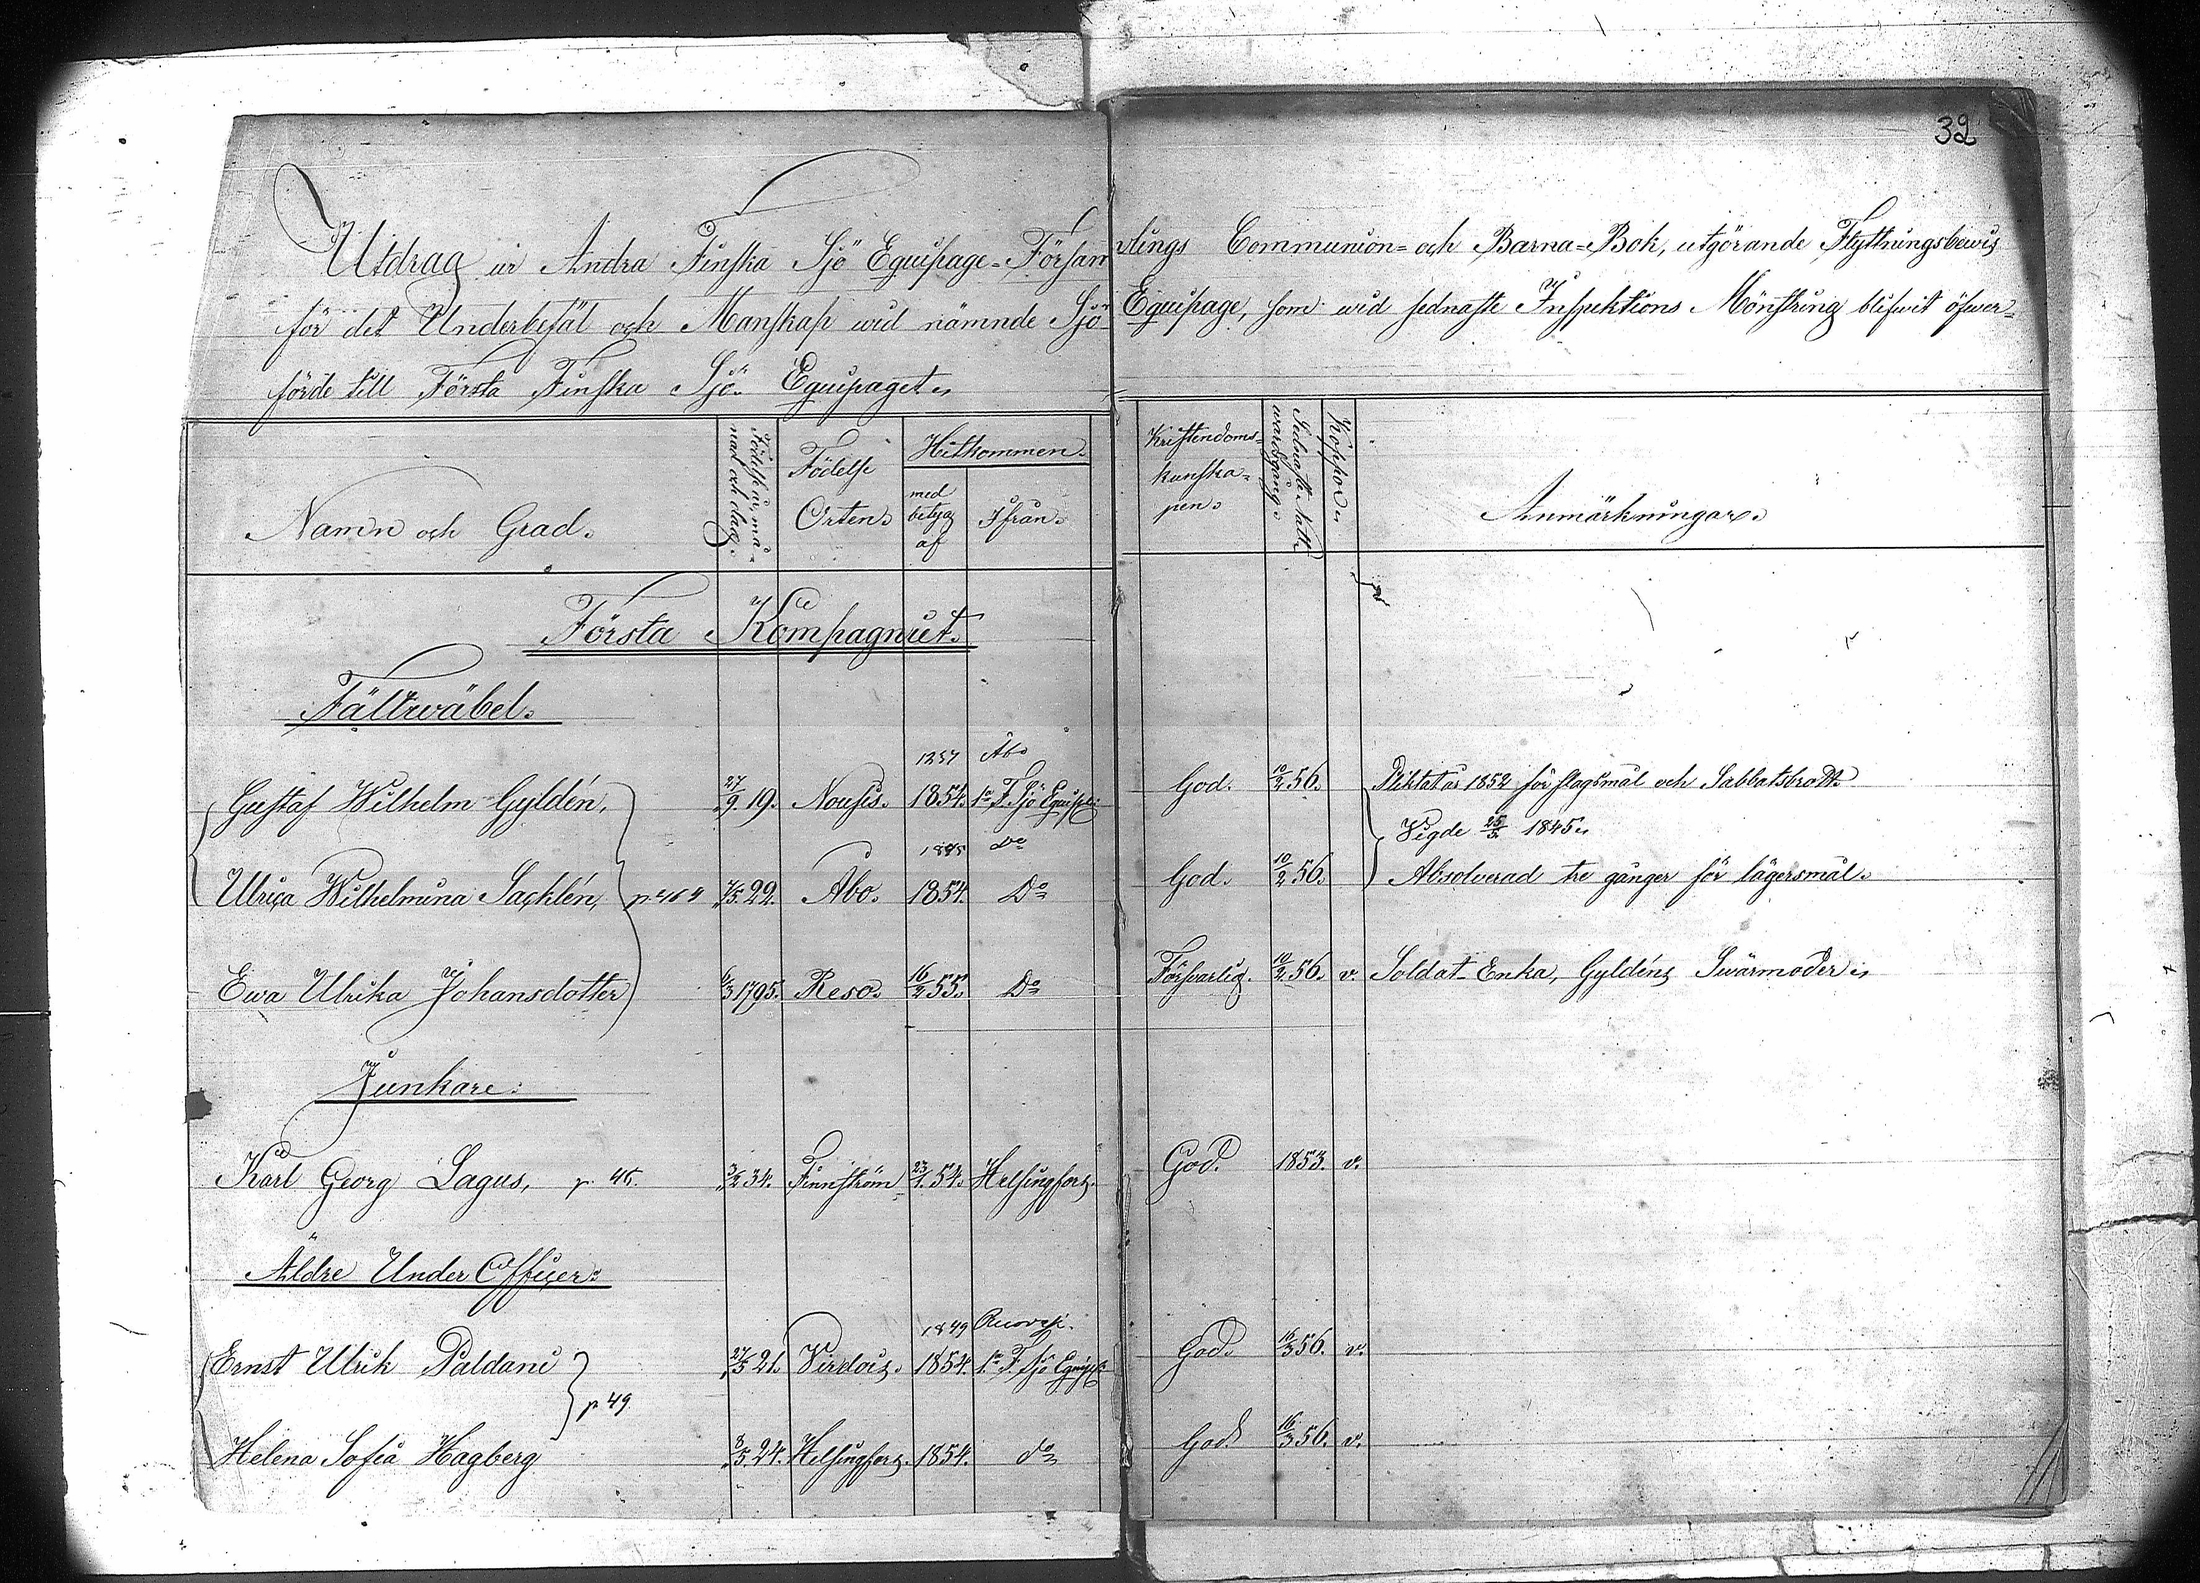 32
Utdrag ur Andra Finska Sjö Equipage-Församlings Communion- och Barna-Bok, utgörande Flyttningsbewis
för det Underbefäl och Manskap wid nämnde Sjö Equipage, som wid sednaste Inspektions Mönstring blifwit öfwer-
förde till Första Finska Sjö Equipaget.
Namn och Grad. Födelse år, må-nad och dag. Födelse Orten. Hitkommen. med betyg af Ifrån. Kristendoms-kunska-pen. Sednaste natt-wardsgång. Koppor. Anmärkningar.
Första Kompagniet.
Fältwäbel.
Åbo
Gustaf Wilhelm Gyldén, 27/9 19. Nousis. 1854. 1a F. Sjö Equip. God. 10/2 56. Pliktat år 1852 för slagsmål och Sabbatsbrott.
Vigde 25/3 1845.
1848 Do
Ulrica Wilhelmina Sacklén, 29. Åbo. 1854. Do God. 10/2 56. Absolverad tre gånger för lägersmål.
Ewa Ulrika Johansdotter 6/3 1795. Reso. 16/2 55. Do Försvarlig. 10/2 56. v. Soldat Enka, Gyldéns Swärmoder.
Junkare.
Karl Georg Lagus, p 46. 3/2 34. Finnström 23/1 54. Helsingfors. God. 1853. v.
Äldre Under Officer.
1849
Ernst Ulrik Paldani 27/3 21. Virdois. 1854. 1a F. Sjö Equip. God. 16/3 56. v.
p 49
Helena Sofia Hagberg 8/5 24. Helsingfors. 1854. do God. 16/3 56. v.